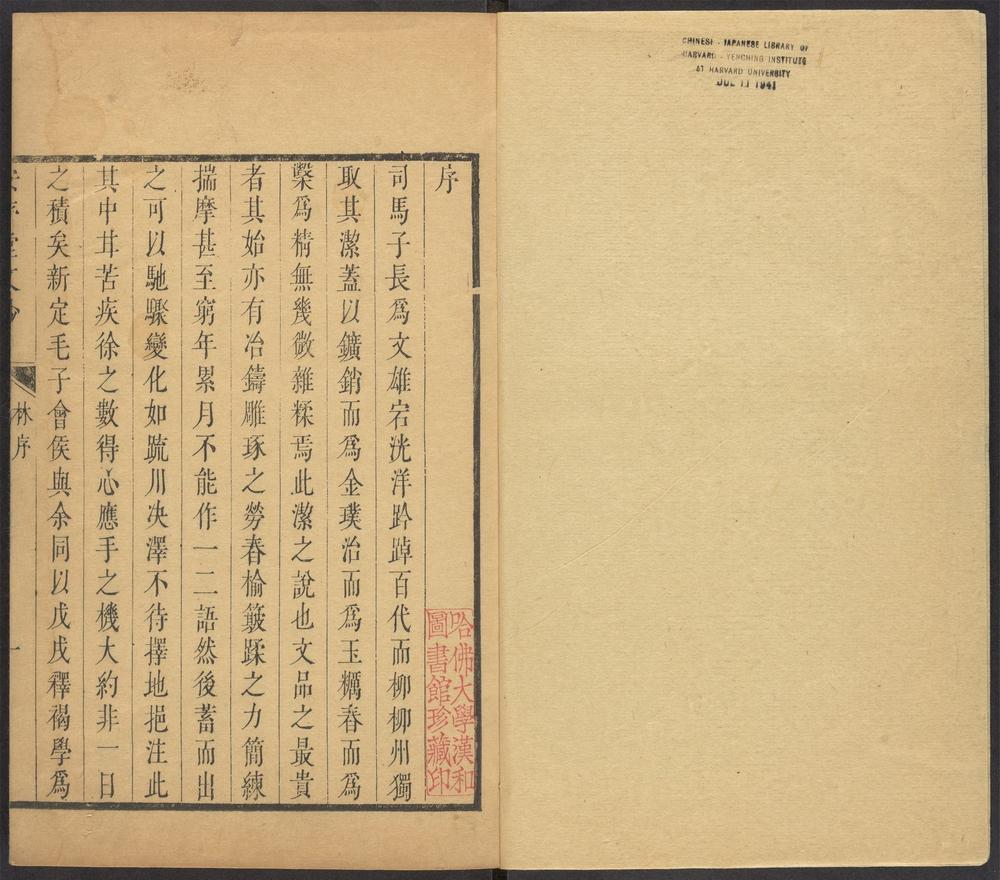 CHINESE - JAPANESE LIBRARY OF
HARVARD - YENCHING INSTITUTE
AT HARVARD UNIVERSITY
JUL 11 1941
序
司馬子長爲文雄宕洸洋跨踔百代而柳柳州獨
取其潔蓋以鑛銷而爲金璞治而爲玉糲舂而爲
糳爲精無幾微雜糅焉此潔之說也文品之最貴
者其始亦有冶鑄雕琢之勞舂榆簸蹂之力簡練
揣摩甚至窮年累月不能作一二語然後蓄而出
之可以馳驟變化如䟽川决澤不待擇地挹注此
其中甘苦疾徐之數得心應手之機大約非一日
之積矣新定毛子會侯與余同以戊戌釋褐學爲
哈佛大學漢和
圖書館珍藏印
林序
一